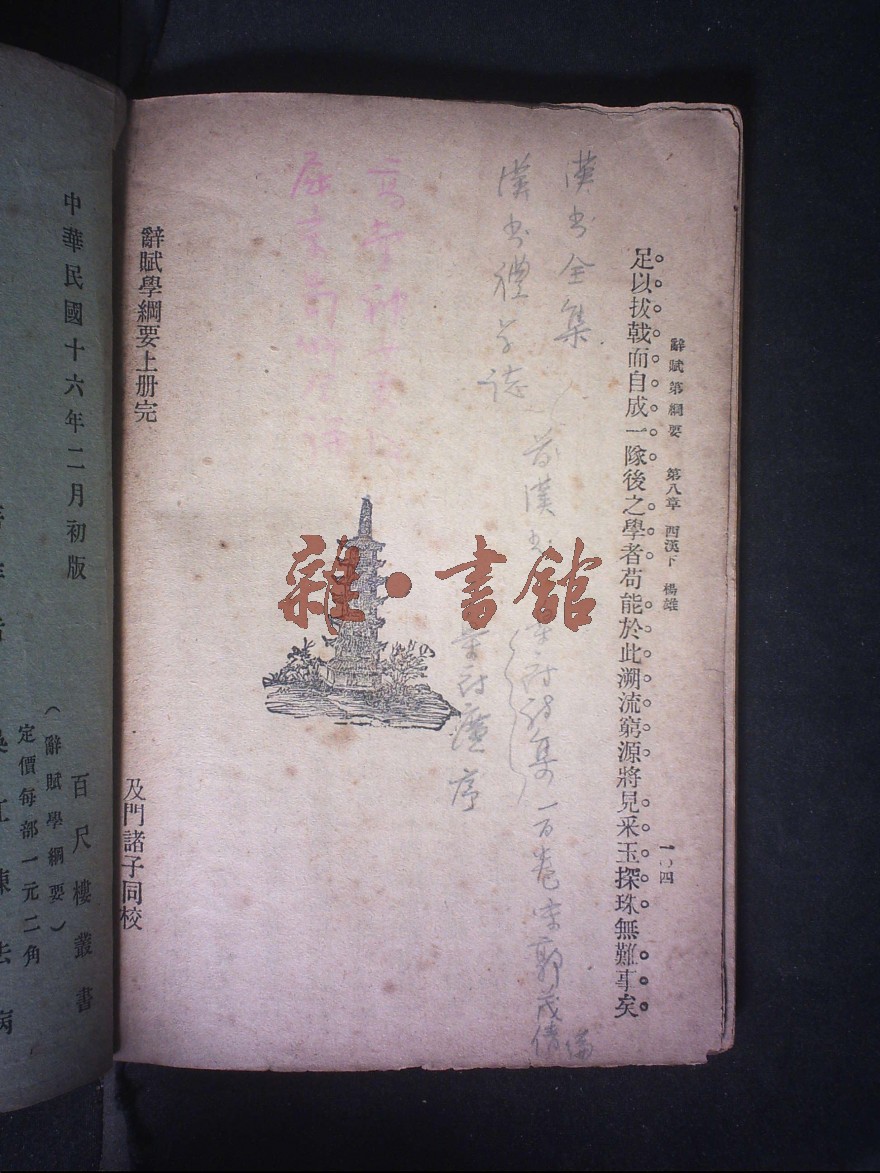 辭賦第綱要　第八章　西漢下　楊雄　一〇四
足以拔戟而自成一隊後之學者苟能於此溯流窮源將見采玉探珠無難事矣
漢書全集
漢書禮樂誌
前漢書
樂府詩集一百卷宋郭茂倩編
樂府廣序
高堂神
雜·書館
辭賦學綱要上册完
及門諸子同校
中華民國十六年二月初版
百尺樓叢書
（辭賦學綱要）
定價每部一元二角
吳江陳去病